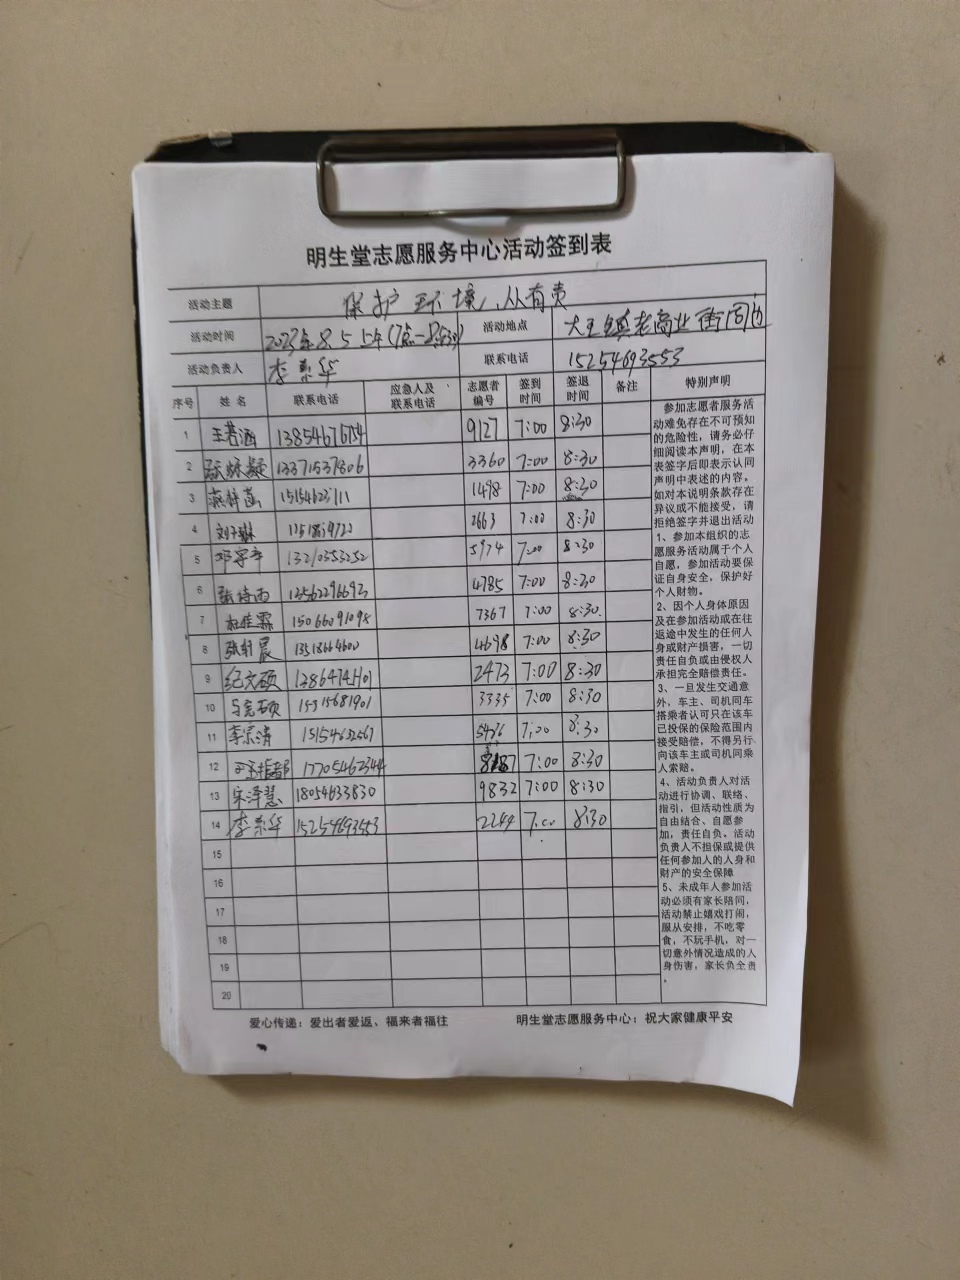 明生堂志愿服务中心活动签到表
活动主题 保护环境,从有责
活动时间 2023年8.5 上午(7点-8点30) 活动地点 大王镇老商业街
活动负责人 李素华 联系电话 15254693553
序号 姓名 联系电话 应急人及联系电话 志愿者编号 签到时间 签退时间 备注 特别声明
1 王若涵 9127 7:00 8:30
2 13371537806 3360 7:00 8:30
3 15154623111 1498 7:00 8:30
4 2663 7:00 8:30
5 邓宇辛 13210353252 5974 7:00 8:30
6 4785 7:00 8:30
7 15066091098 7367 7:00 8:30
8 13518664600 4698 7:00 8:30
9 纪文硕 2473 7:00 8:30
10 15315681901 3335 7:00 8:30
11 李宗清 7:00 8:30
12 17705462344 7:00 8:30
13 宋泽慧 18054633830 9832 7:00 8:30
14 李素华 15254693553 2244 7:00 8:30
15
16
17
18
19
20
参加志愿者服务活
动难免存在不可预知
的危险性，请务必仔
细阅读本声明，在本
表签字后即表示认同
声明中表述的内容。
如对本说明条款存在
异议或不能接受，请
拒绝签字并退出活动
1、参加本组织的志
愿服务活动属于个人
自愿，参加活动要保
证自身安全，保护好
个人财物。
2、因个人身体原因
及在参加活动或在往
返途中发生的任何人
身或财产损害，一切
责任自负或由侵权人
承担完全赔偿责任。
3、一旦发生交通意
外，车主、司机同车
搭乘者认可只在该车
已投保的保险范围内
接受赔偿，不得另行
向该车主或司机同乘
人索赔。
4、活动负责人对活
动进行协调、联络、
指引，但活动性质为
自由结合、自愿参
加，责任自负。活动
负责人不担保或提供
任何参加人的人身和
财产的安全保障
5、未成年人参加活
动必须有家长陪同，
活动禁止嬉戏打闹，
服从安排，不吃零
食，不玩手机，对一
切意外情况造成的人
身伤害，家长负全责
。
爱心传递：爱出者爱返、福来者福往 明生堂志愿服务中心：祝大家健康平安